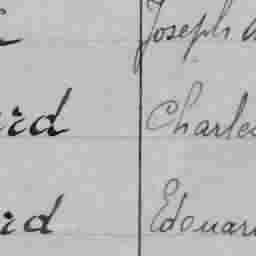 Joseph
rd Charles
rd Edouard